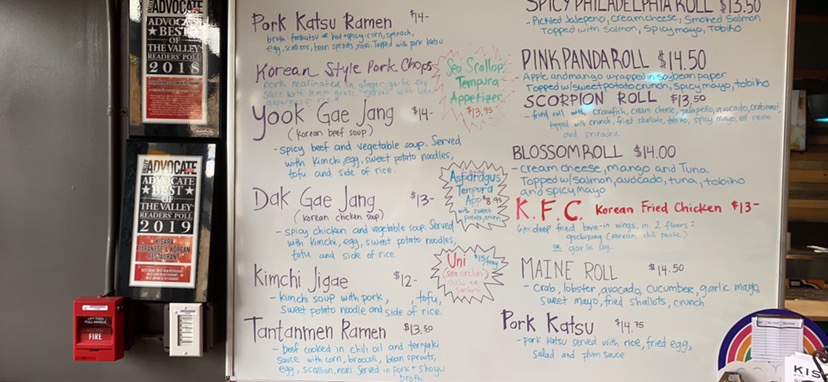 ADVOCATE
ADVOCATE
★BEST★
OF THE VALLEY
READERS' POLL
2018
ADVOCATE
ADVOCATE
★BEST★
OF
THE VALLEY
READERS' POLL
2019
HISARA
JAPANESE & KOREAN
RESTAURANT
FIRE
Pork Katsu Ramen $14-
broth tonkotsu or hot+spicy, corn, spinach,
egg, scallions, bean sprouts, nori. Topped with pork katsu
Korean Style Pork Chops
pork marinated in ginger
Yook Gae Jang $14-
(korean beef soup)
- spicy beef and vegetable soup. Served
with kimchi, egg, sweet potato noodles,
tofu and side of rice.
Dak Gae Jang $13-
(korean chicken soup)
- spicy chicken and vegetable soup. Served
with kimchi, egg, sweet potato noodles,
tofu and side of rice
Kimchi Jigae $12-
- kimchi soup with pork, tofu,
sweet potato noodle and side of rice.
Tantanmen Ramen $13.50
- beef cooked in chili oil and teriyaki
sauce with corn, broccoli, bean sprouts,
egg, scallion, nori. Served in pork + shoyu
broth.
Sea Scallop
Tempura
Appetizer
$13.95
Asparagus
Tempura
App $8.95
with sweet
potato, onion
Uni
(sea urchin)
SPICY PHILADELPHIA ROLL $13.50
- Pickled Jalepeno, creamcheese, smoked salmon
Topped with salmon, spicy mayo, tobiko
PINK PANDA ROLL $14.50
Apple and mango wrapped in soybean paper
Topped w/ sweet potato crunch, spicy mayo, tobiko
SCORPION ROLL $13.50
- fried roll with crawfish, cream cheese, jalapeño, avocado, crabmeat,
topped with crunch, fried shallots, tobiko, spicy mayo, eel sauce
and sriracha
BLOSSOM ROLL $14.00
- cream cheese, mango and Tuna
Topped w/ salmon, avocado, tuna, tobiko
and spicy mayo
K.F.C. Korean Fried Chicken $13-
6 pc deep fried bone-in wings in 2 flavors:
gochujang (Korean chili paste)
or garlic soy
MAINE ROLL $14.50
- Crab, lobster, avocado, cucumber, garlic mayo,
sweet mayo, fried shallots, crunch
Pork Katsu $14.75
- pork katsu served with rice, fried egg,
salad and plum sauce
KIS